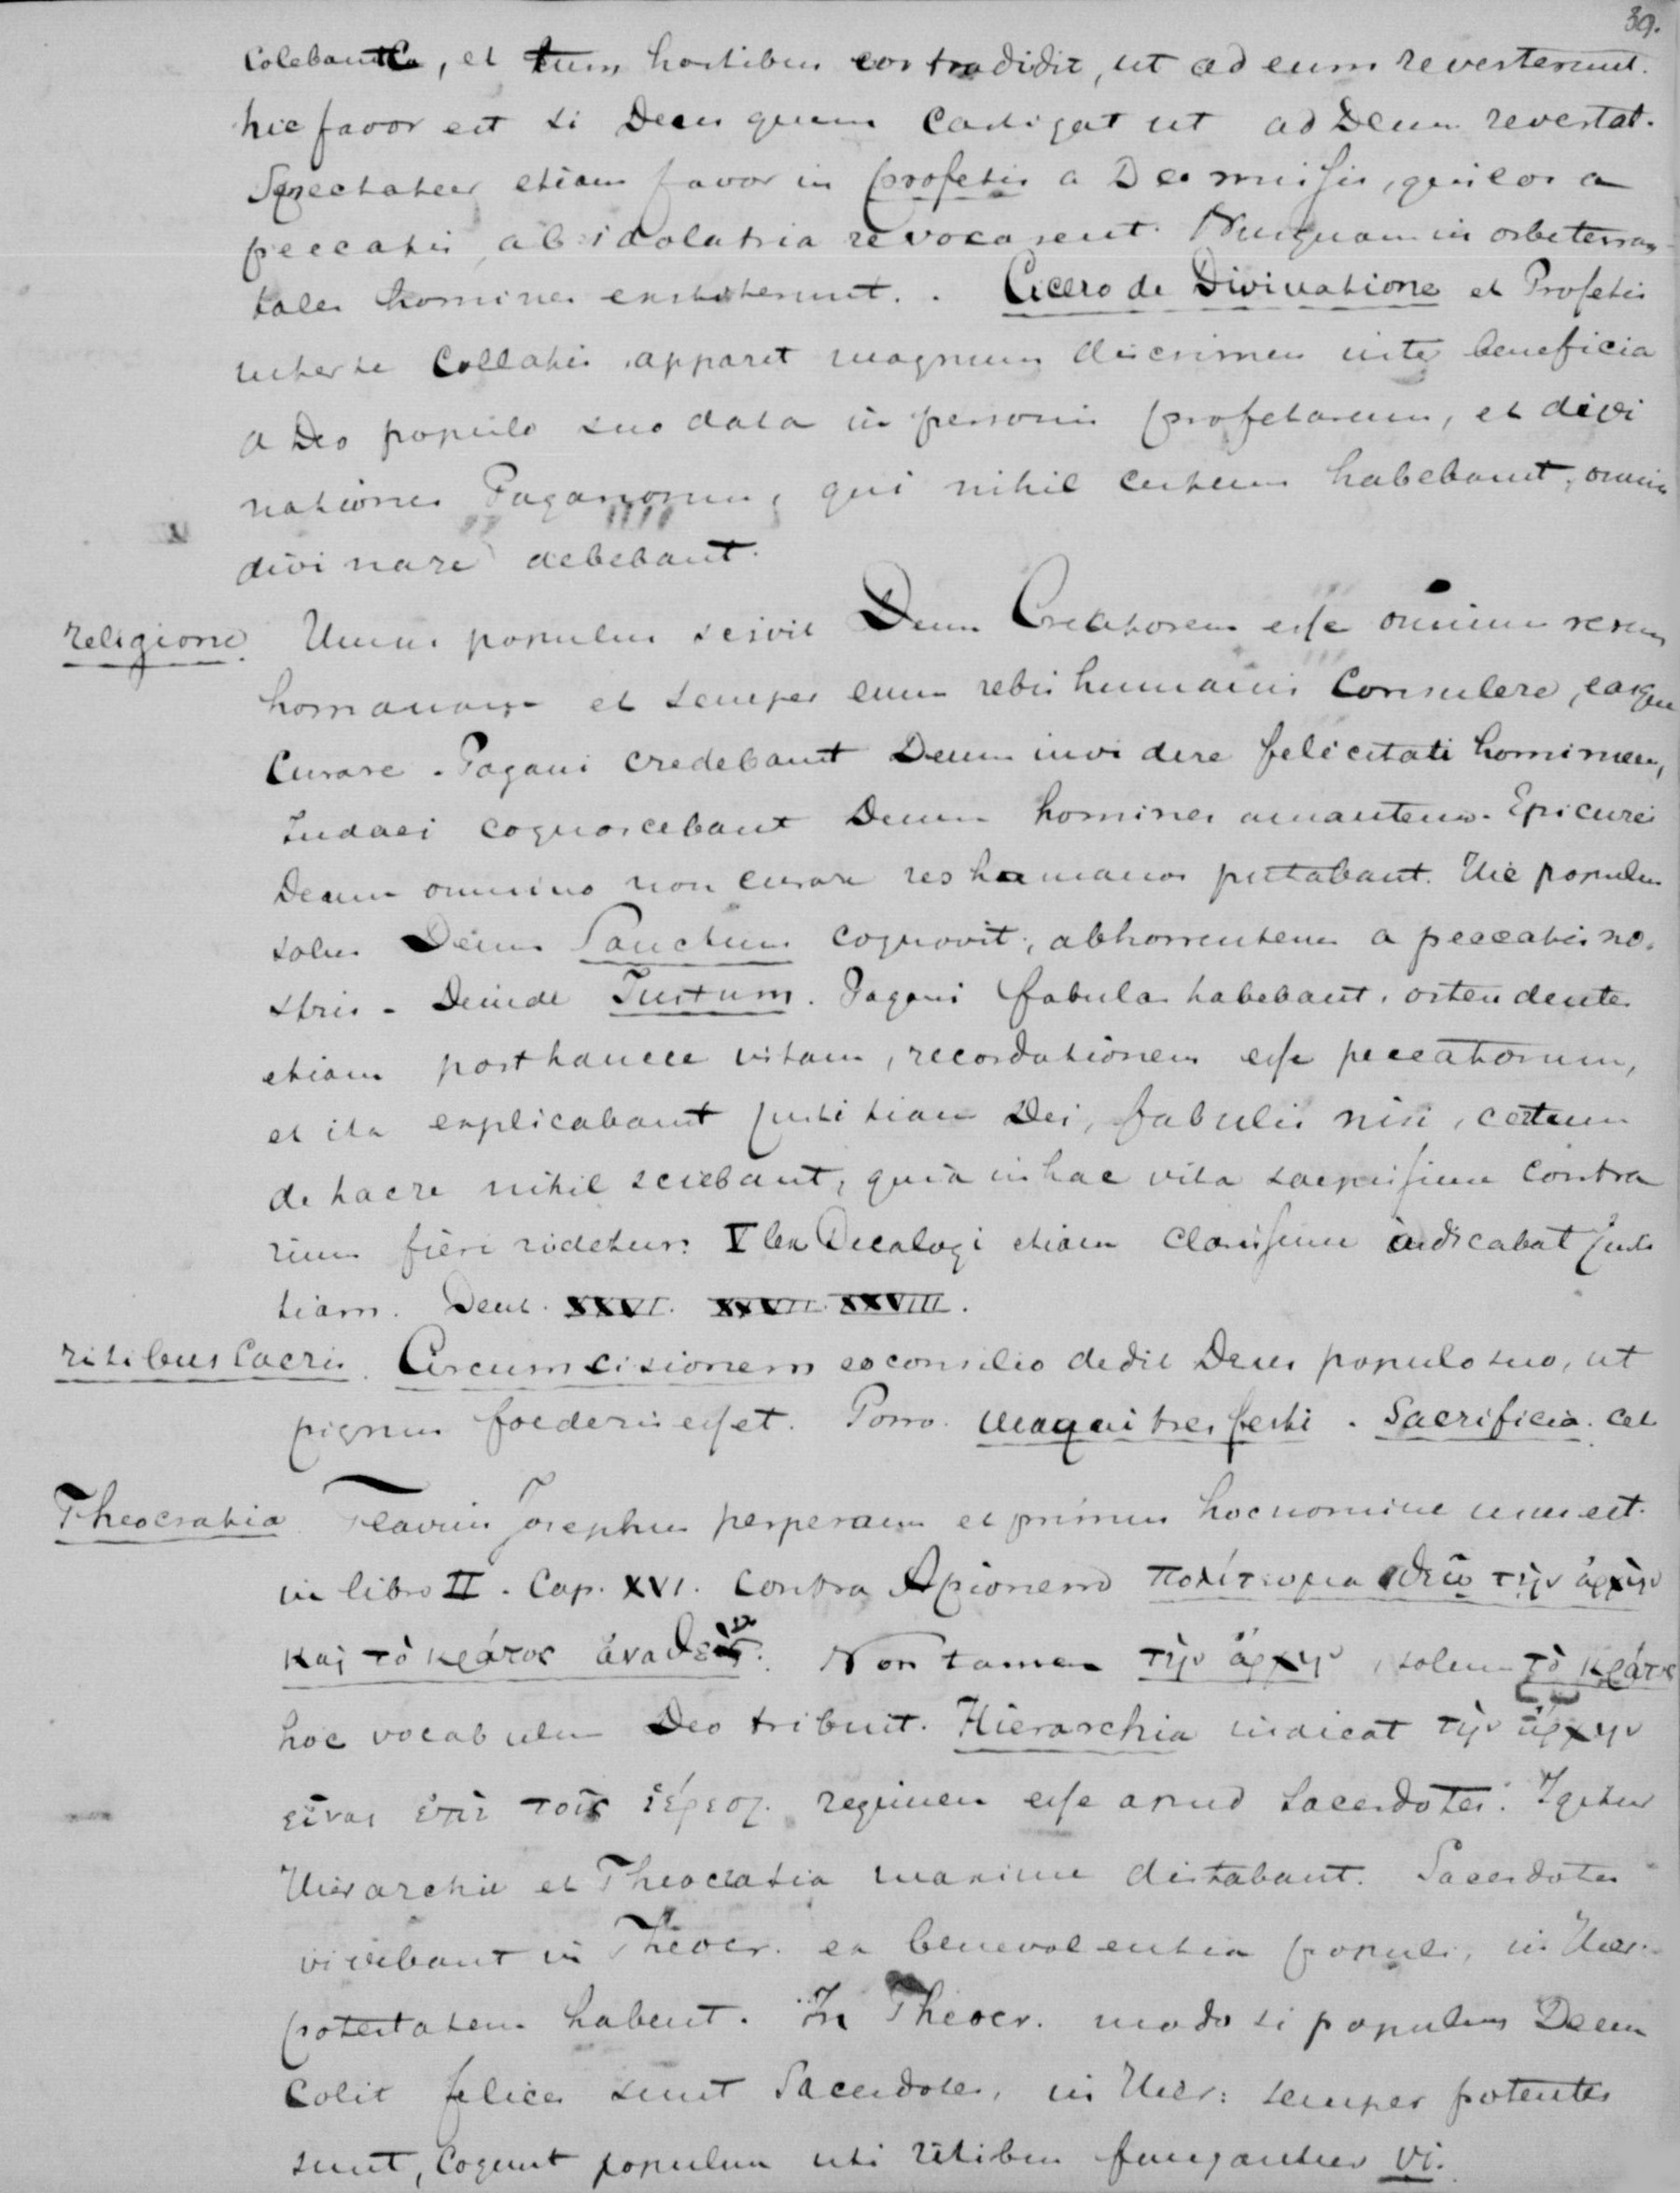 39.
colebant, et tum hostibus eos tradidit, ut ad eum reverterunt.
hic favor est si Deus quem castigat ut ad Deum revertat.
Spectatur etiam favor in profetis a Deo missis, qui eos a
peccatis, ab idolatria revocarent. Nunquam in orbe terrar
tales homines exstiterunt. . Cicero de Divinatione et Profetis
inter se collatis apparet magnum discrimen inter beneficia
a Deo populo suo data in personis profetarum, et divi
nationes Paganorum, qui nihil certum habebant, omnia
divinare debebant.
religione. Unus populus scivit Deum Creatorem esse omnium rerum
homanarum et semper eum rebus humanis consulere, easque
curare. Pagani credebant Deum invidere felicitati hominum,
Judaei cognoscebant Deum homines amantem. Epicurei
Deum omnino non curare res humanas putabant. Hic populus
solus Deum Sanctum cognovit, abhorrentem a peccatis no-
stris. Deinde Justum. Pagani fabulas habebant, ostendentes
etiam post hancce vitam, recordationem esse peccatorum,
et ita explicabant justitiam Dei, fabulis nisi, certum
de hac re nihil sciebant, quia in hac vita saepissime contra
rium fieri videtur. V lex Decalogi etiam clarissime indicabat justi
tiam. Deut. XXVI. XXVII. XXVIII.
ritibus sacris. Circumcisionem eo consilio dedit Deus populo suo, ut
pignus foederis esset. Porro. magni tres festi. Sacrificia. cet
Theocratia Flavius Josephus perperam et primus hoc nomine usus est.
in libro II. Cap. XVI. contra Apionem πολίτευμα θεῶ τὴν ἀρχὴν
και τὸ κράτος ἀναθεις. Non tamen τὴν ἀρχην, solum τὸ κράτος
hoc vocabulum Deo tribuit. Hierarchia indicat τὴν ἀρχην
εἶναι ἐπὶ τοῖς ἱέρεσι. regimen esse apud sacerdotes. Igitur
Hierarchie et Theocratia maxime distabant. Sacerdotes
vivebant in Theocr. ex benevolentia populi, in Hier.
potestatem habent. In Theocr. modo si populus Deum
colit felices sunt Sacerdotes, in Hier: semper potentes
sunt, cogunt populum uti ritibus fungantur vi.